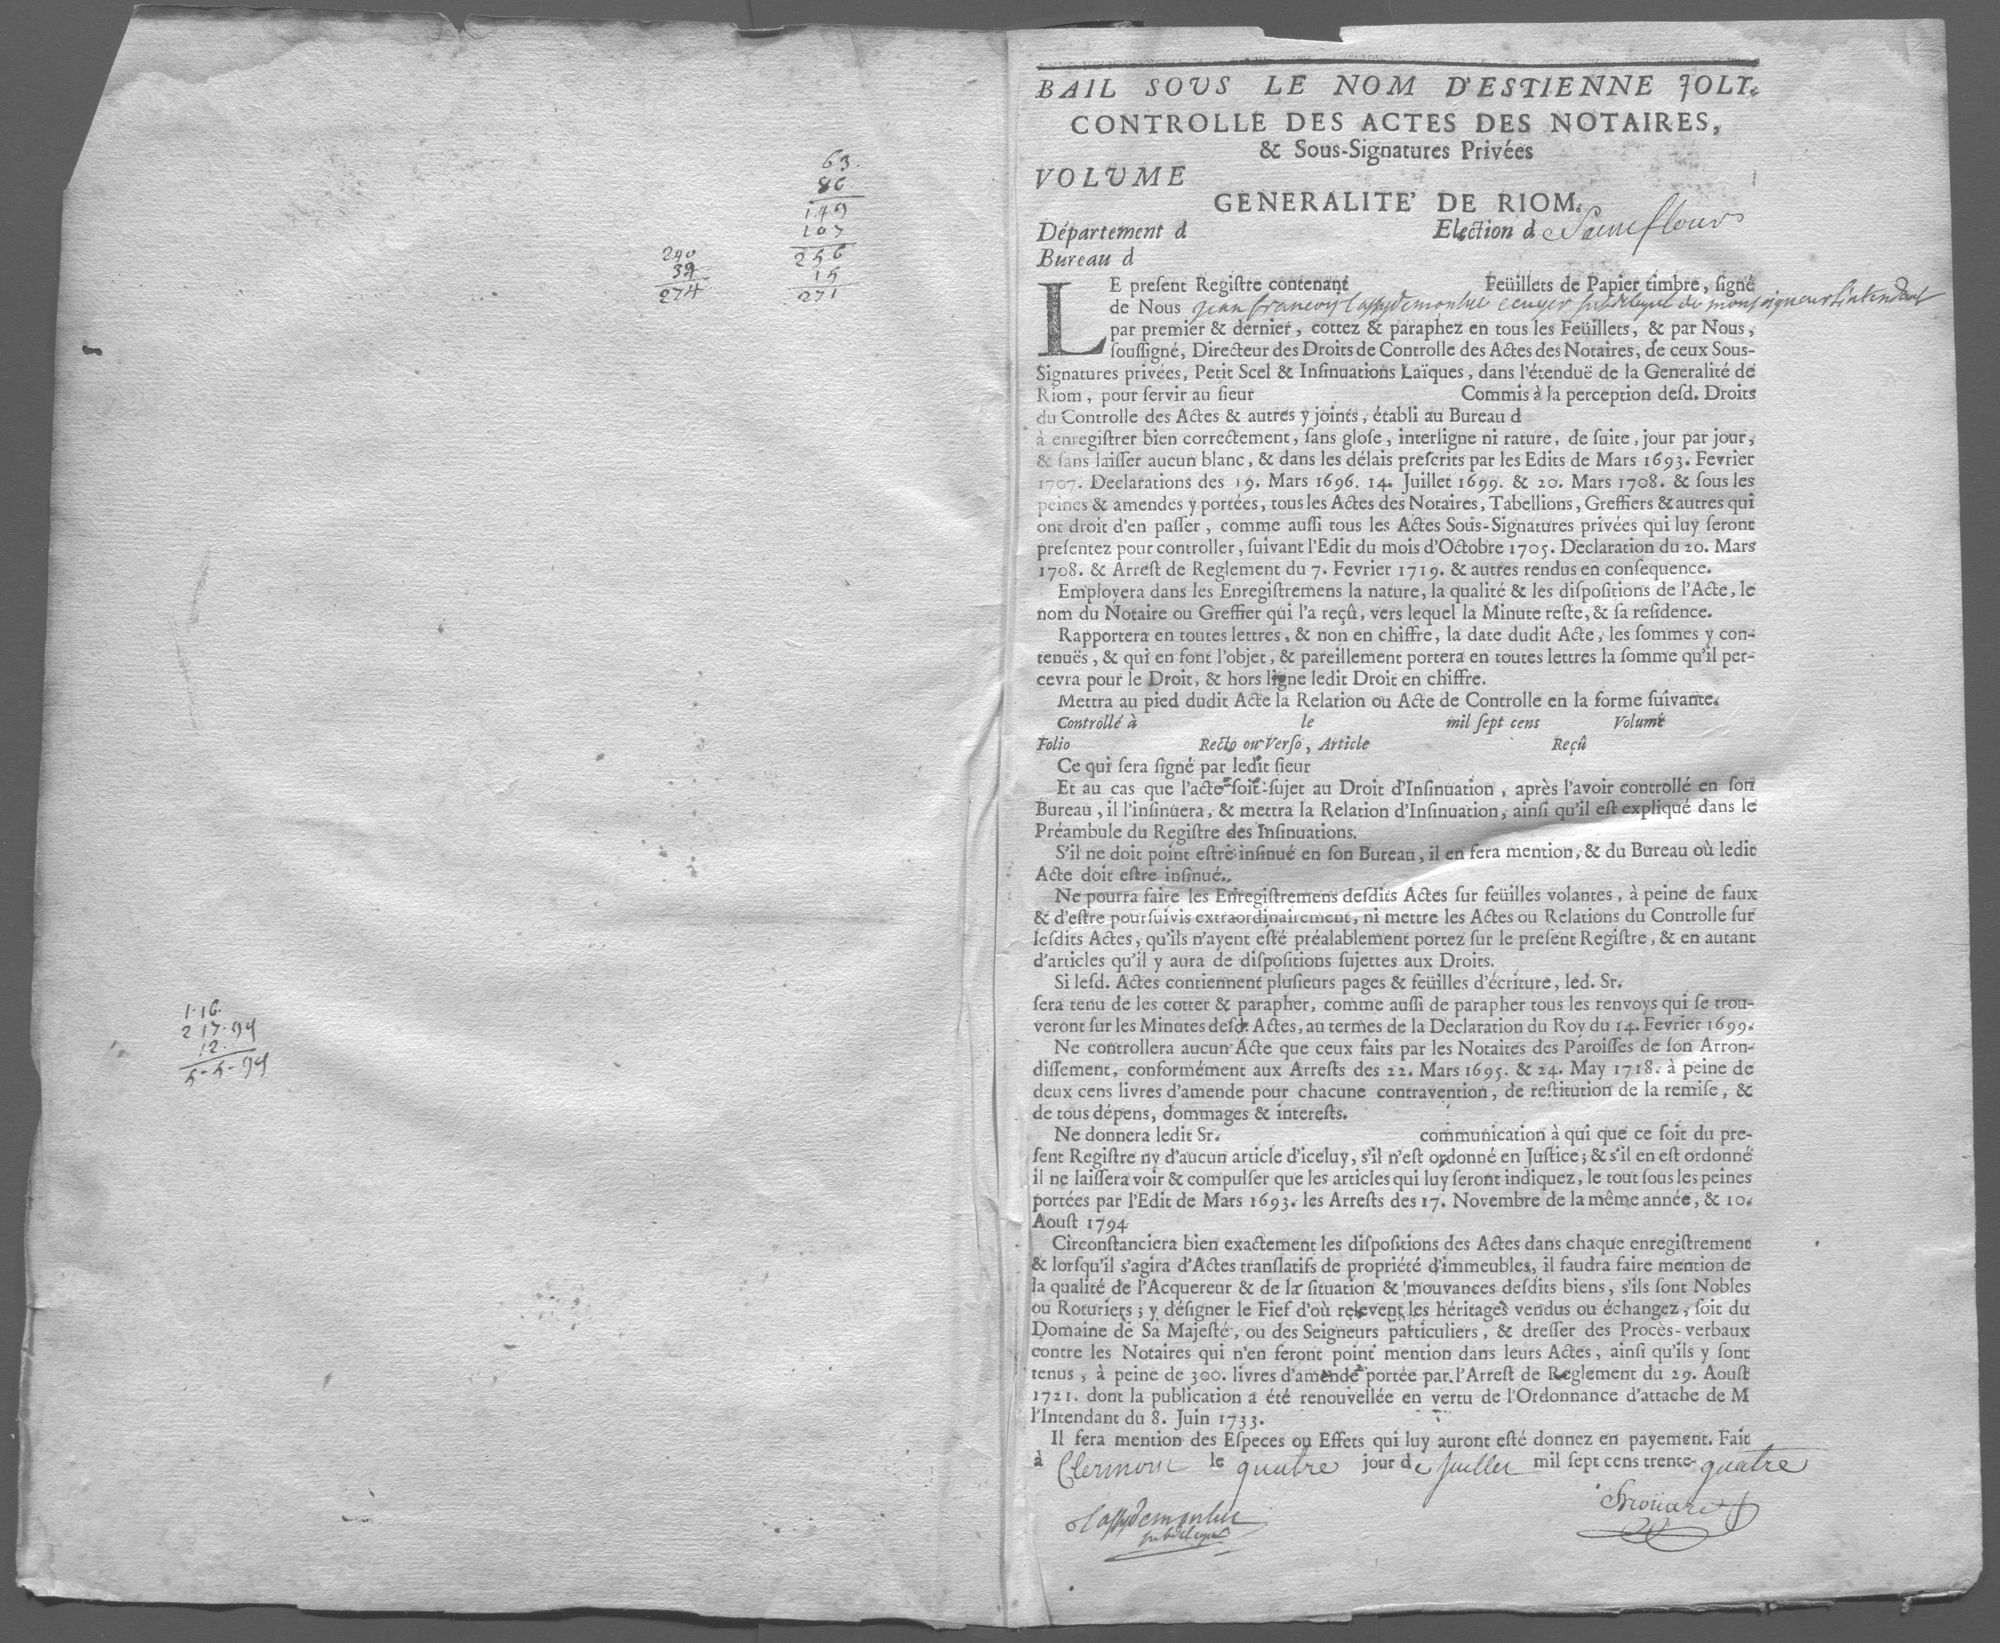 63.
86
149
107
256
15
271
240
34
274
1.16.
217.94
12.
5-5-94
BAIL SOUS LE NOM D'ESTIENNE JOLY.
CONTROLLE DES ACTES DES NOTAIRES,
& Sous-Signatures Privées
VOLUME
GENERALITE' DE RIOM.
Département d Election d Saint flour
Bureau d
LE present Registre contenant Feüillets de Papier timbre, signé
de Nous jean francois lassydemonluc ecuyer subdelegué de monseigneur l'intendant
par premier & dernier, cottez & paraphez en tous les Feüillets, & par Nous,
soussigné, Directeur des Droits de Controlle des Actes des Notaires, de ceux Sous-
Signatures privées, Petit Scel & Insinuations Laïques, dans l'étenduë de la Generalité de
Riom, pour servir au sieur Commis à la perception desd. Droits
du Controlle des Actes & autres y joints, établi au Bureau d
à enregistrer bien correctement, sans glose, interligne ni rature, de suite, jour par jour,
& sans laisser aucun blanc, & dans les délais prescrits par les Edits de Mars 1693. Fevrier
1707. Declarations des 19. Mars 1696. 14. Juillet 1699. & 20. Mars 1708. & sous les
peines & amendes y portées, tous les Actes des Notaires, Tabellions, Greffiers & autres qui
ont droit d'en passer, comme aussi tous les Actes Sous-Signatures privées qui luy seront
presentez pour controller, suivant l'Edit du mois d'Octobre 1705. Declaration du 20. Mars
1708. & Arrest de Reglement du 7. Fevrier 1719. & autres rendus en consequence.
Employera dans les Enregistremens la nature, la qualité & les dispositions de l'Acte, le
nom du Notaire ou Greffier qui l'a reçû, vers lequel la Minute reste, & sa residence.
Rapportera en toutes lettres, & non en chiffre, la date dudit Acte, les sommes y con-
tenuës, & qui en font l'objet, & pareillement portera en toutes lettres la somme qu'il per-
cevra pour le Droit, & hors ligne ledit Droit en chiffre.
Mettra au pied dudit Acte la Relation ou Acte de Controlle en la forme suivante.
Controllé à le mil sept cens Volume
Folio Recto ou Verso, Article Reçû
Ce qui sera signé par ledit sieur
Et au cas que l'acte soit sujet au Droit d'Insinuation, après l'avoir controllé en son
Bureau, il l'insinuera, & mettra la Relation d'Insinuation, ainsi qu'il est expliqué dans le
Préambule du Registre des Insinuations.
S'il ne doit point estre insinué en son Bureau, il en fera mention, & du Bureau où ledit
Acte doit estre insinué.
Ne pourra faire les Enregistremens desdits Actes sur feüilles volantes, à peine de faux
& d'estre poursuivis extraordinairement, ni mettre les Actes ou Relations du Controlle sur
lesdits Actes, qu'ils n'ayent esté préalablement portez sur le present Registre, & en autant
d'articles qu'il y aura de dispositions sujettes aux Droits.
Si lesd. Actes contiennent plusieurs pages & feüilles d'écriture, led. Sr.
sera tenu de les cotter & parapher, comme aussi de parapher tous les renvoys qui se trou-
veront sur les Minutes desd. Actes, au termes de la Declaration du Roy du 14. Fevrier 1699.
Ne controllera aucun Acte que ceux faits par les Notaites des Paroisses de son Arron-
dissement, conformément aux Arrests des 22. Mars 1695. & 24. May 1718. à peine de
deux cens livres d'amende pour chacune contravention, de restitution de la remise, &
de tous dépens, dommages & interests.
Ne donnera ledit Sr. communication à qui que ce soit du pre-
sent Registre ny d'aucun article d'iceluy, s'il n'est ordonné en Justice; & s'il en est ordonné
il ne laissera voir & compulser que les articles qui luy seront indiquez, le tout sous les peines
portées par l'Edit de Mars 1693. les Arrests des 17. Novembre de la même année, & 10.
Aoust 1794
Circonstanciera bien exactement les dispositions des Actes dans chaque enregistrement
& lorsqu'il s'agira d'Actes translatifs de propriété d'immeubles, il faudra faire mention de
la qualité de l'Acquereur & de la situation & mouvances desdits biens, s'ils sont Nobles
ou Roturiers; y désigner le Fief d'où relevent les héritages vendus ou échangez, soit du
Domaine de Sa Majesté, ou des Seigneurs particuliers, & dresser des Procès-verbaux
contre les Notaires qui n'en feront point mention dans leurs Actes, ainsi qu'ils y sont
tenus, à peine de 300. livres d'amende portée par l'Arrest de Reglement du 29. Aoust
1721. dont la publication a été renouvellée en vertu de l'Ordonnance d'attache de M
l'Intendant du 8. Juin 1733.
Il fera mention des Especes ou Effets qui luy auront esté donnez en payement. Fait
à Clermont le quatre jour de juillet mil sept cens trente-quatre
subdelegué